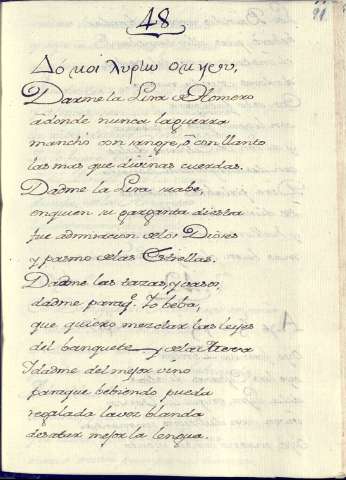 48
21
Δό μοι λυρίω ομηρου,
Dadme la Lira de Homero
a donde nunca la guerra
manchò con sangre, ò con llanto
las mas que divinas cuerdas.
Dadme la Lira suabe,
en quien su garganta diestra
fue admiracion de los Dioses
y pasmo de las Estrellas.
Dadme las tazas, y vasos,
dadme paraq.e Yo beba,
que quiero mezclar las leyes
del banquete, y de la
Y dadme del mejor vino
para que bebiendo pueda
regalada la voz blanda
desatar mejor la lengua.